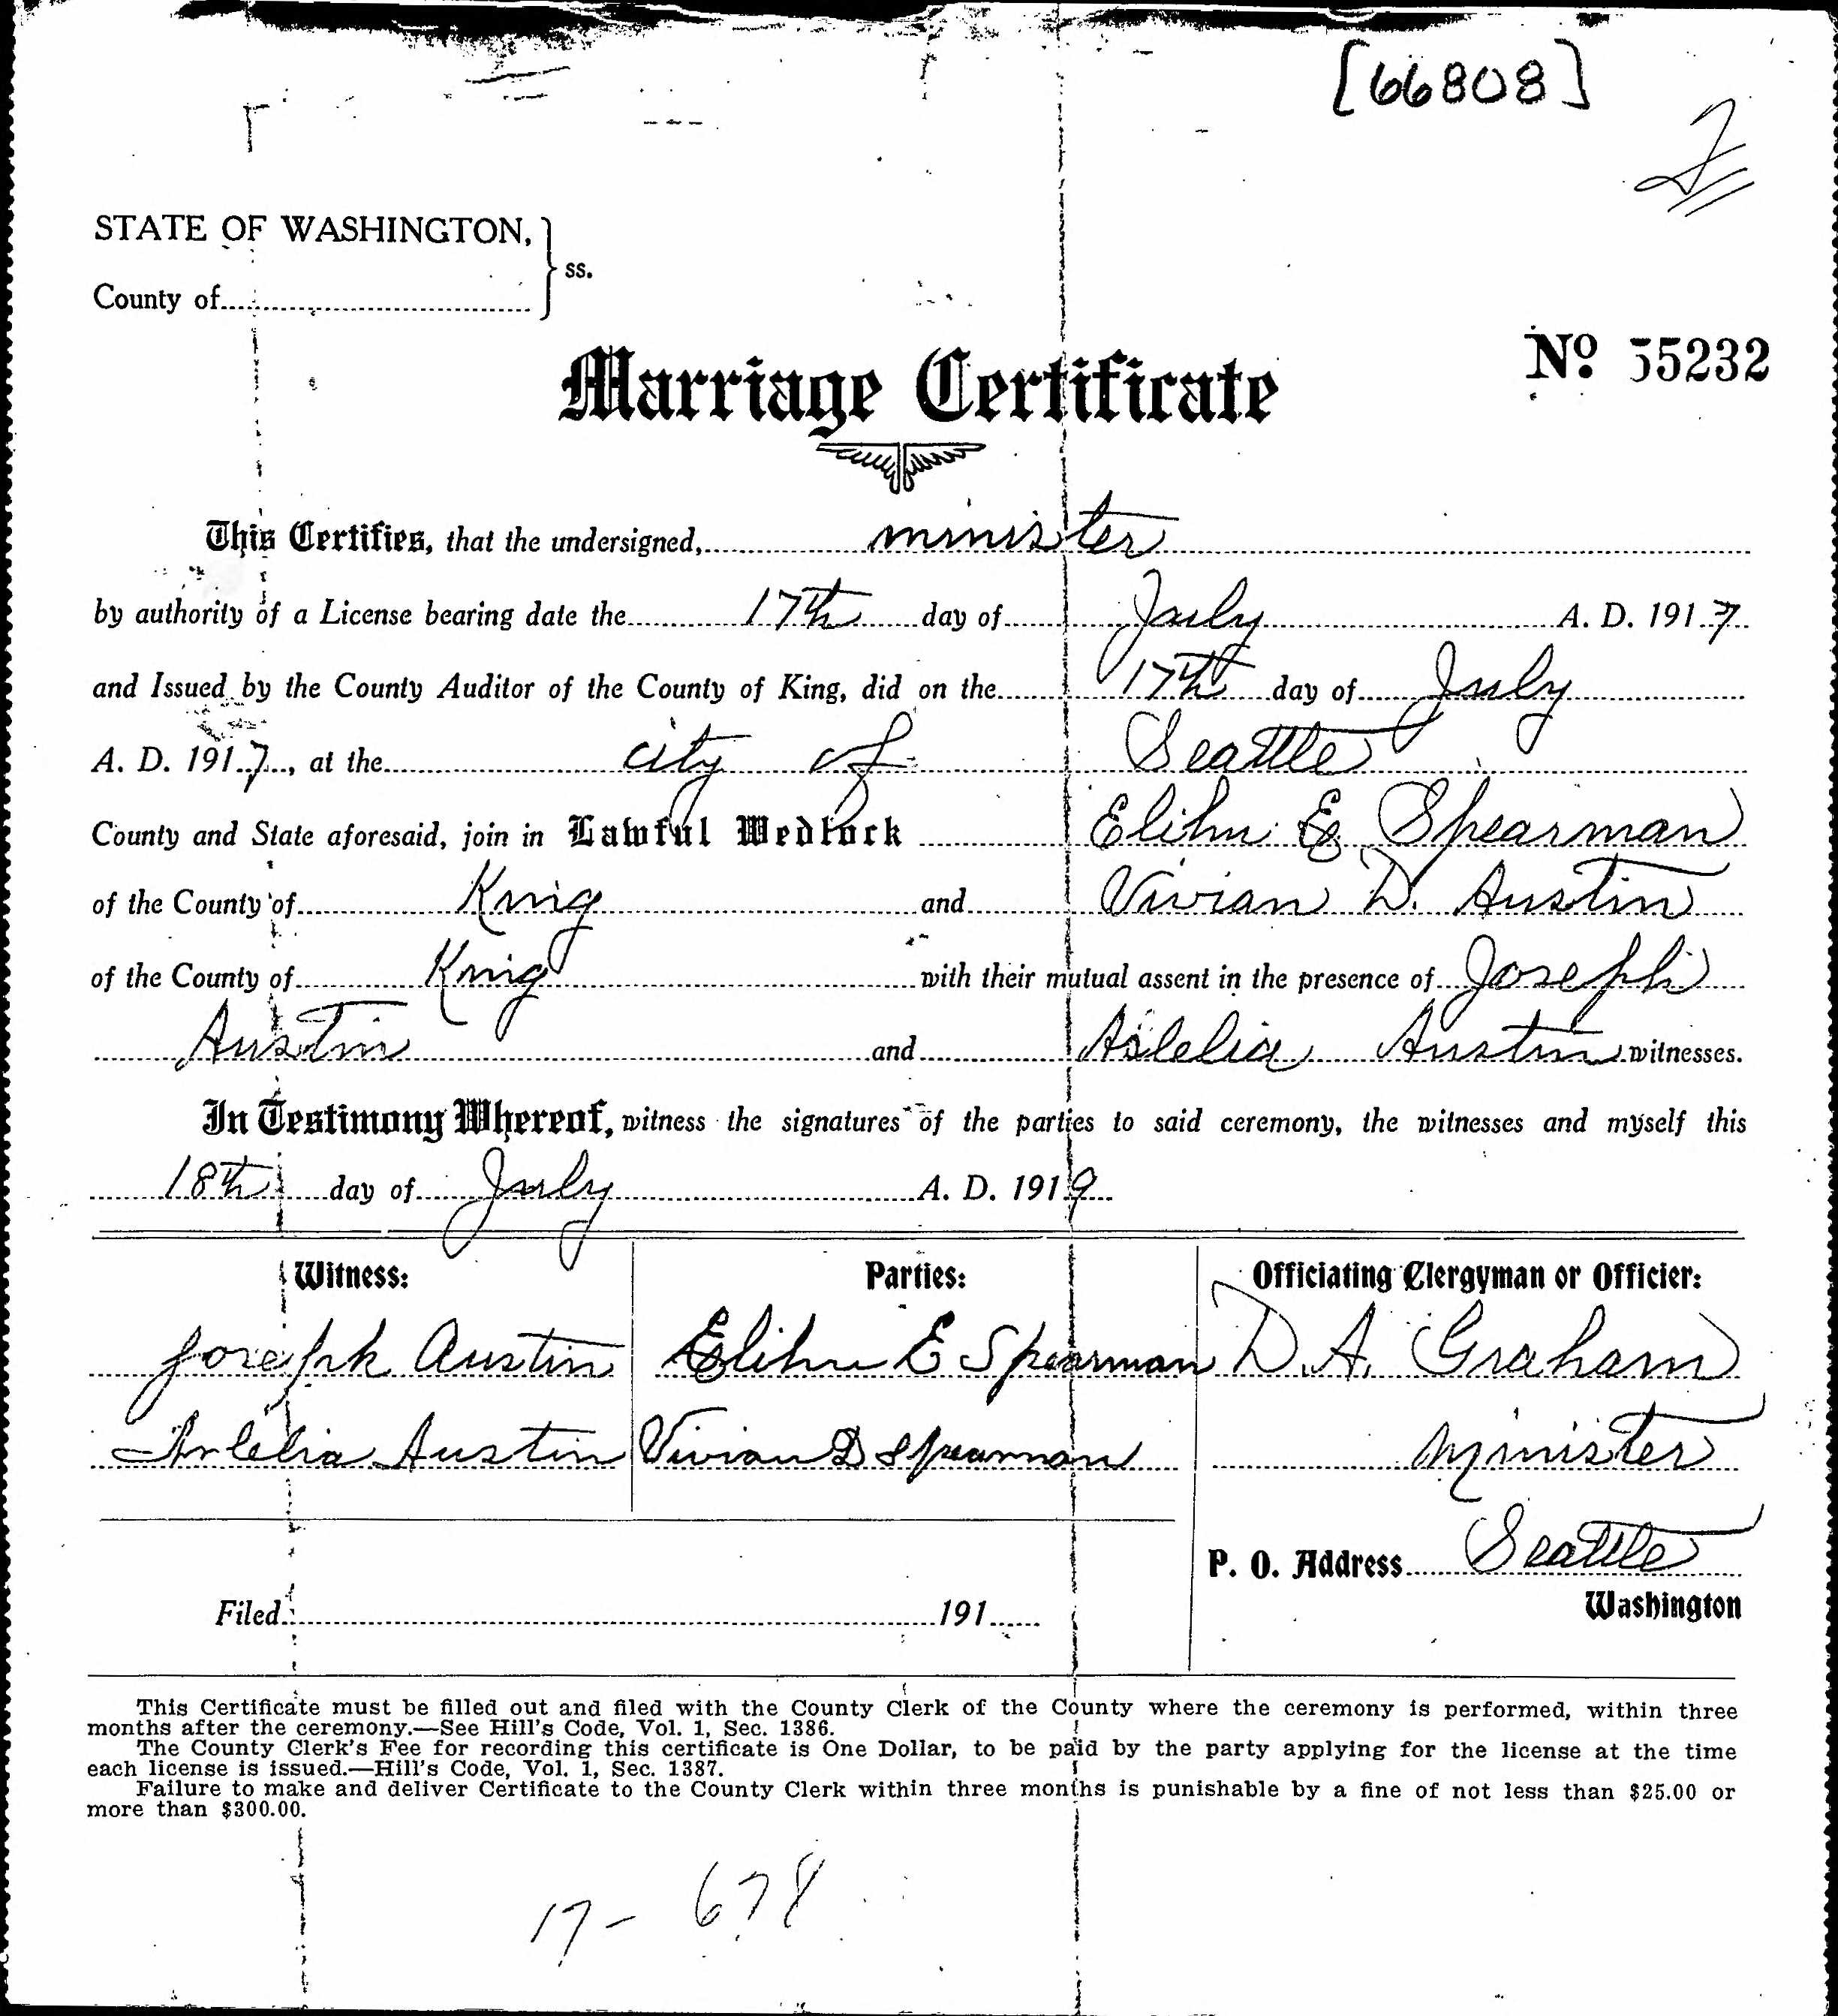 [66808]
STATE OF WASHINGTON,
ss.
County of
No. 55232
Marriage Certificate
This Certifies, that the undersigned, minister
by authority of a License bearing date the 17th day of July A. D. 1917
and Issued by the County Auditor of the County of King, did on the 17th day of July
A. D. 1917, at the city of Seattle
County and State aforesaid, join in Lawful Wedlock Elihu E Spearman
of the County of King and Vivian D. Austin
of the County of King with their mutual assent in the presence of Joseph
Austin and Austin witnesses.
In Testimony Whereof, witness the signatures of the parties to said ceremony, the witnesses and myself this
18th day of July A. D. 1919
Witness: Parties: Officiating Clergyman or Officier:
Joseph Austin Elihu E Spearman D. A. Graham
Austin Vivian D Spearman Minister
P. O. Address Seattle
Filed 191 Washington
This Certificate must be filled out and filed with the County Clerk of the County where the ceremony is performed, within three
months after the ceremony.—See Hill's Code, Vol. 1, Sec. 1386.
The County Clerk's Fee for recording this certificate is One Dollar, to be paid by the party applying for the license at the time
each license is issued.—Hill's Code, Vol. 1, Sec. 1387.
Failure to make and deliver Certificate to the County Clerk within three months is punishable by a fine of not less than $25.00 or
more than $300.00.
17- 678